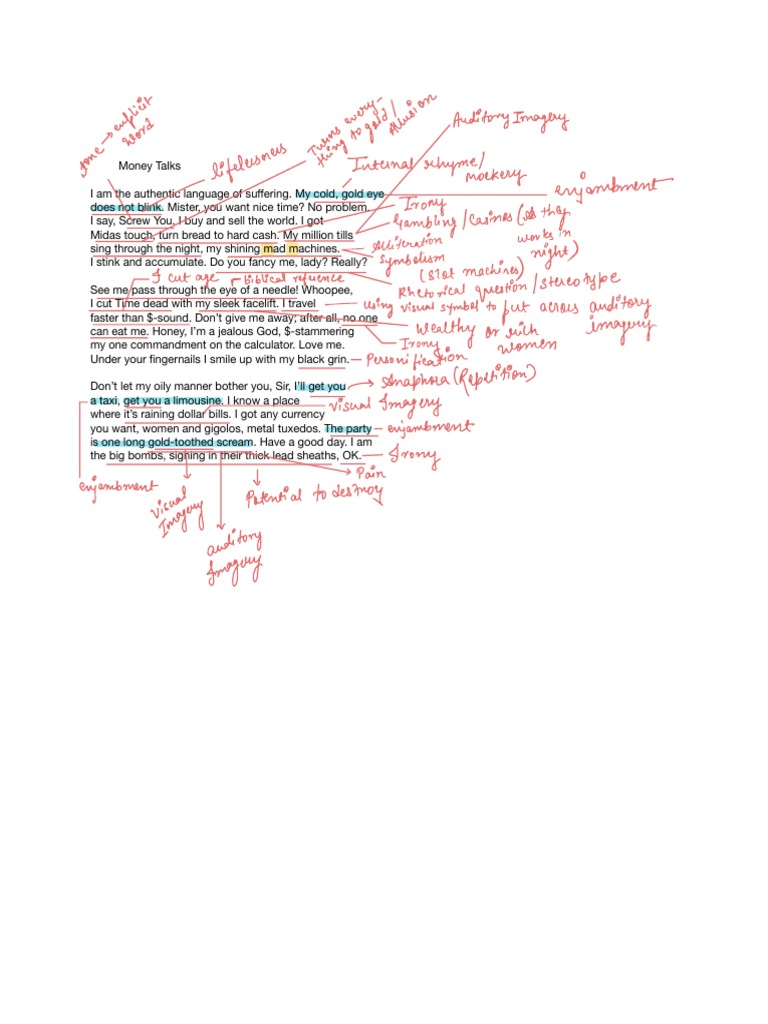 tone → explicit
word
lifelessness
Turns every-
thing to gold /
Allusion
Auditory Imagery
Money Talks
Internal rhyme/
mockery
I am the authentic language of suffering. My cold, gold eye
enjambment
does not blink. Mister, you want nice time? No problem.
Irony
I say, Screw You, I buy and sell the world. I got
Gambling / Casinos (as they
works in
night)
Midas touch, turn bread to hard cash. My million tills
sing through the night, my shining mad machines.
Alliteration
Symbolism
(slot machines)
I stink and accumulate. Do you fancy me, lady? Really?
Rhetorical question / stereotype
I cut age
biblical refuence
See me pass through the eye of a needle! Whoopee,
I cut Time dead with my sleek facelift. I travel
using visual symbol to put across auditory
imagery
faster than $-sound. Don't give me away; after all, no one
wealthy or rich
women
can eat me. Honey, I'm a jealous God, $-stammering
my one commandment on the calculator. Love me.
Irony
Under your fingernails I smile up with my black grin.
Personification
Don't let my oily manner bother you, Sir, I'll get you
Anaphora (Repetition)
a taxi, get you a limousine. I know a place
Visual Imagery
where it's raining dollar bills. I got any currency
you want, women and gigolos, metal tuxedos. The party
enjambment
is one long gold-toothed scream. Have a good day. I am
the big bombs, signing in their thick lead sheaths, OK.
Irony
Pain
enjambment
Visual
Imagery
Potential to destroy
auditory
Imagery